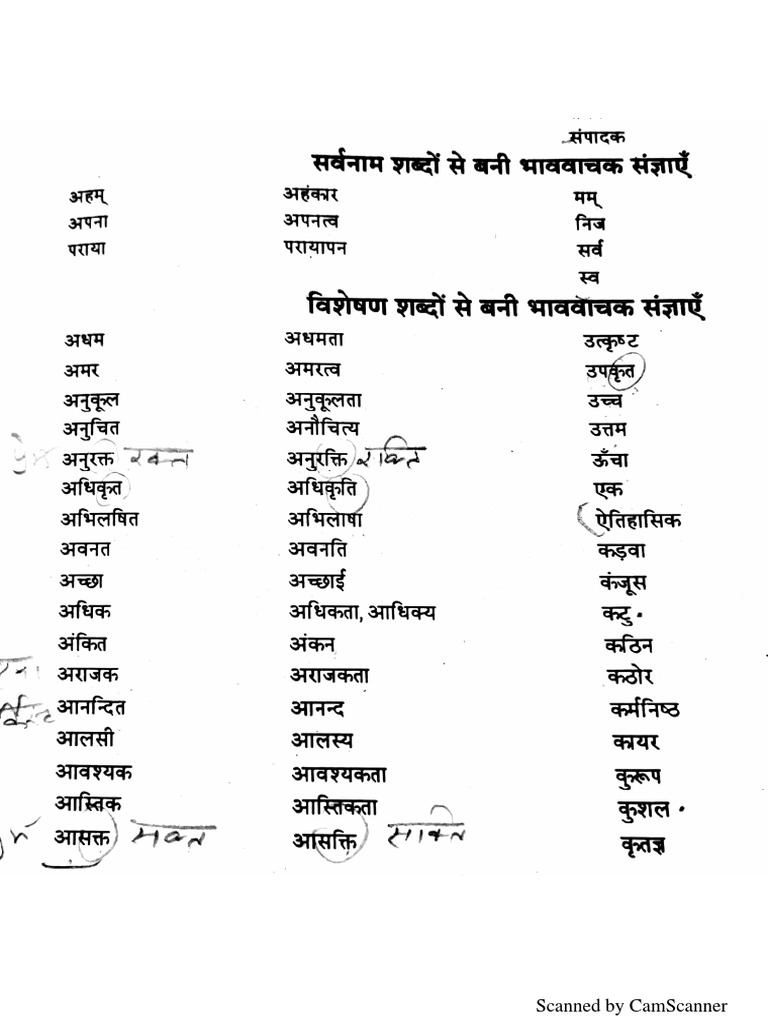 संपादक
सर्वनाम शब्दों से बनी भाववाचक संज्ञाएँ
अहम् अहंकार मम्
अपना अपनत्व निज
पराया परायापन सर्व
स्व
विशेषण शब्दों से बनी भाववाचक संज्ञाएँ
अधम अधमता उत्कृष्ट
अमर अमरत्व उपकृत
अनुकूल अनुकूलता उच्च
अनुचित अनौचित्य उत्तम
अनुरक्त रक्त अनुरक्ति रक्ति ऊँचा
अधिकृत अधिकृति एक
अभिलषित अभिलाषा ऐतिहासिक
अवनत अवनति कड़वा
अच्छा अच्छाई कंजूस
अधिक अधिकता, आधिक्य कटु
अंकित अंकन कठिन
अराजक अराजकता कठोर
आनन्दित आनन्द कर्मनिष्ठ
आलसी आलस्य कायर
आवश्यक आवश्यकता कुरूप
आस्तिक आस्तिकता कुशल
आसक्त आसक्ति कृतज्ञ
Scanned by CamScanner